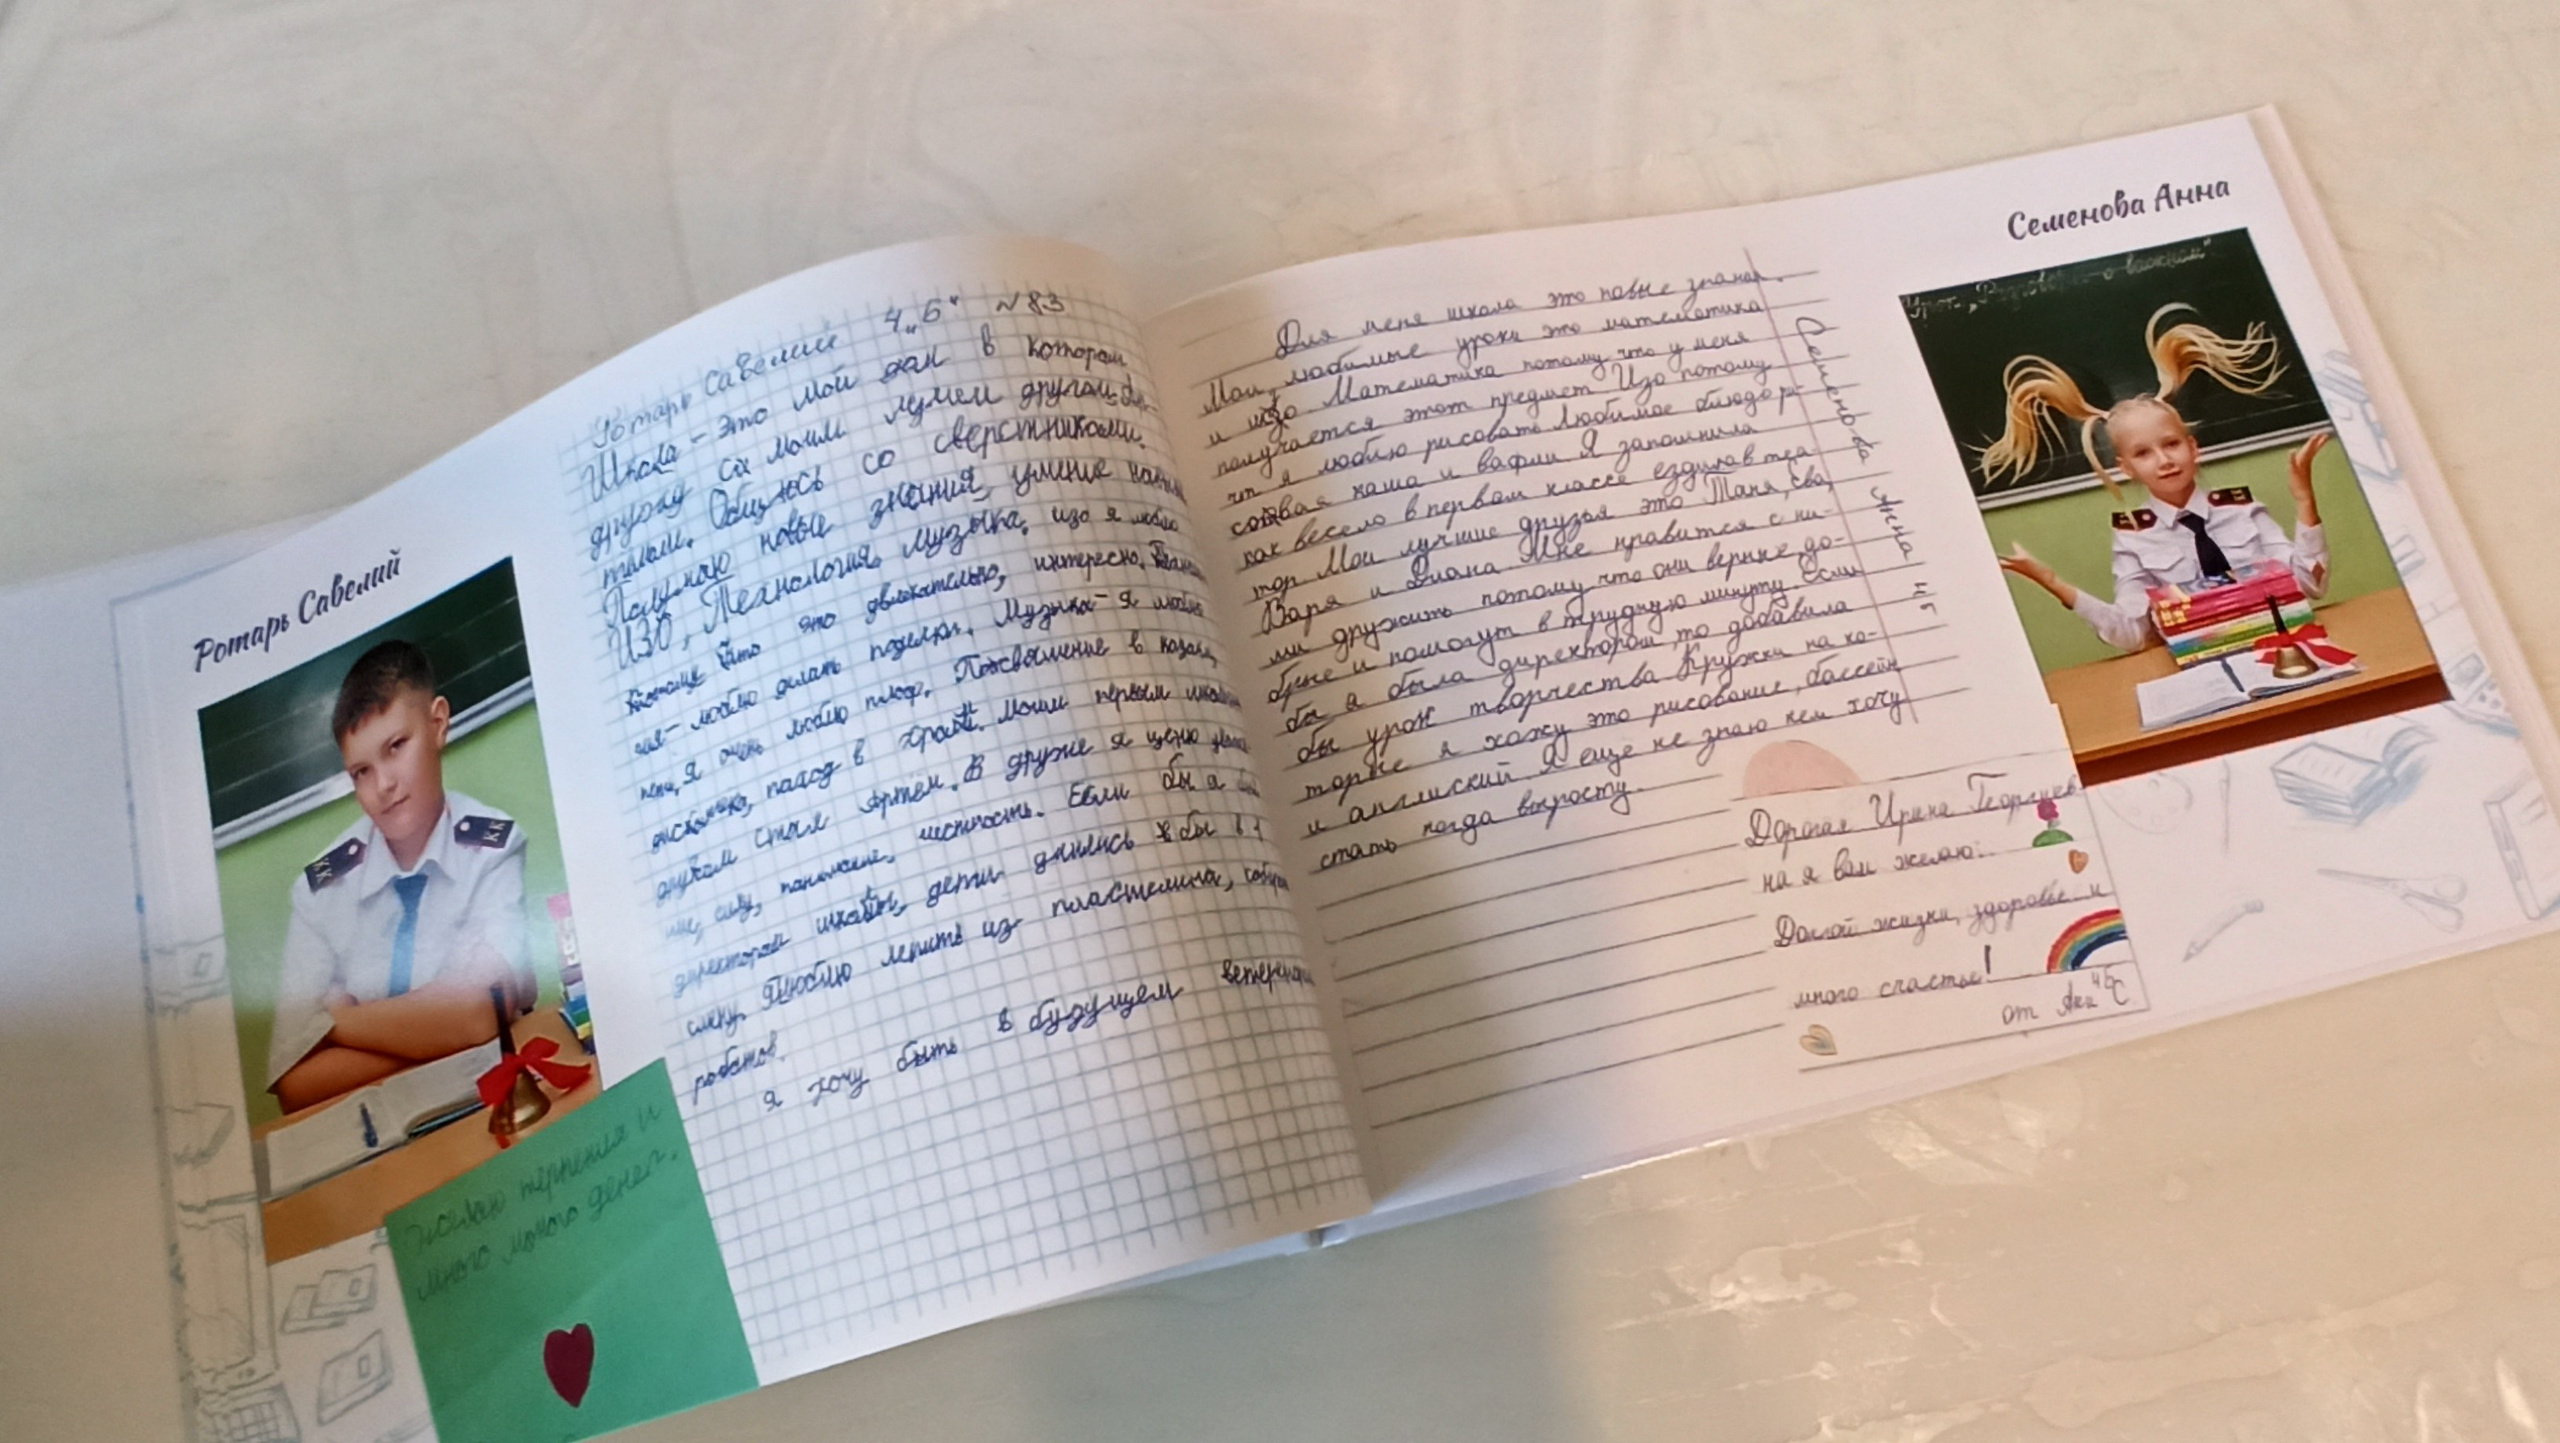 Ротарь Савелий
Ротарь Савелий 4 "Б" №83
Школа - это мой дом в котором
дружу со моим лучшим другом
Общаюсь со сверстниками.
Получаю новые знания, умение
ИЗО, Технология, музыка. изо я люблю
потому что это увлекательно, интересно.
гия - люблю делать поделки. Музыка - я люблю
петь. Я очень люблю плов. Посвящение в казаки,
дискотека, поход в храм. Моим первым
другом стал Артём. В друже я ценю
силу, понимание, честность. Если бы я был
директором школы, дети дрались бы в 1
смену. Я люблю лепить из пластелина,
роботов.
Я хочу быть в будущем
Желаю терпения и
много много денег.
Семенова Анна
Урок "Разговоры о важном"
Для меня школа это новые знания.
Мои любимые уроки это математика
и изо Математика потому что у меня
получается этот предмет Изо потому
что я люблю рисовать Любимое блюдо ри-
совая каша и вафли Я запомнила
как весело в первом классе ездила в теа
тор Мои лучшие друзья это Таня, Ева,
Варя и Диана Мне нравится с ни-
ми дружить потому что они верные, до-
брые и помогут в трудную минуту Если
бы я была директором, то добавила
бы урок творчества Кружки на ко-
торые я хожу это рисование, бассейн
и англиский Я еще не знаю кем хочу
стать когда выросту.
Семенова Анна 4Б
Дорогая Ирина Георгиев
на я вам желаю:
Долгой жизни, здоровье и
много счастье!
от Ани 4Б С